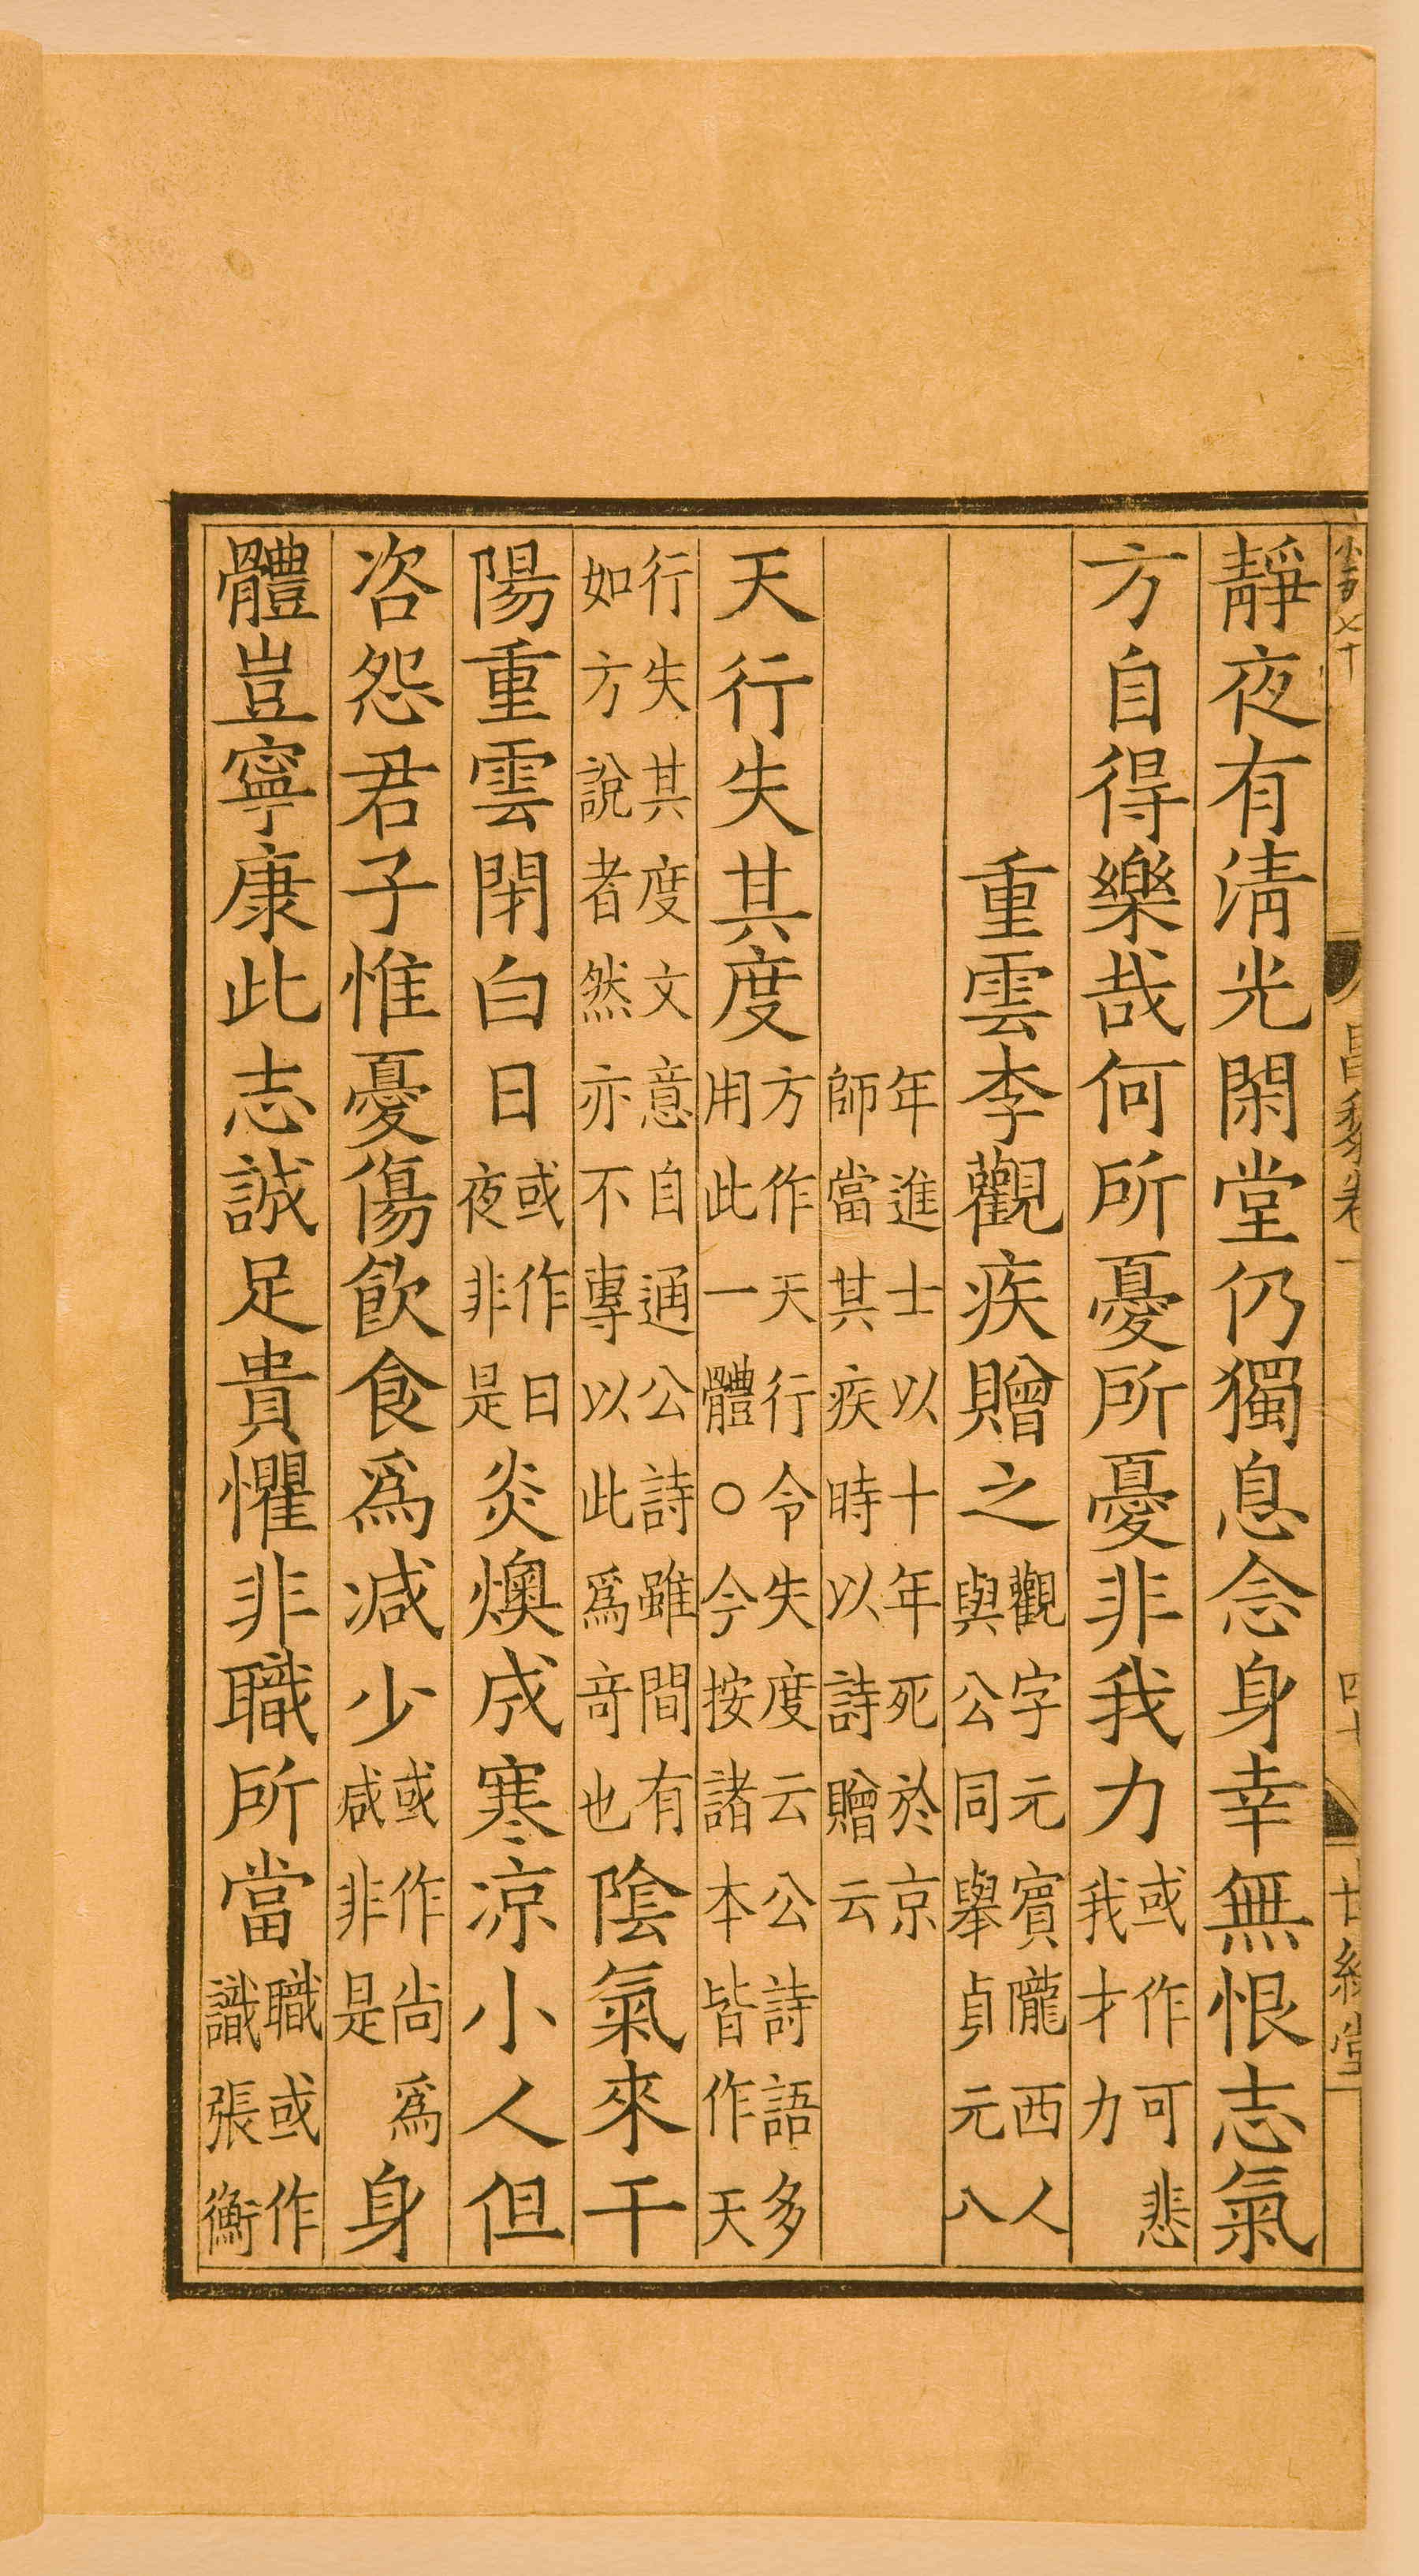 昌黎卷一
靜夜有清光閑堂仍獨息念身幸無恨志氣
方自得樂哉何所憂所憂非我力或作可悲我才力
重雲李觀疾贈之觀字元賓隴西人與公同舉貞元八
年進士以十年死於京師當其疾時以詩贈云
天行失其度方作天行令失度云公詩語多用此一體○今按諸本皆作天
行失其度文意自通公詩雖間有如方說者然亦不專以此爲奇也陰氣來干
陽重雲閉白日或作日夜非是炎燠成寒凉小人但
咨怨君子惟憂傷飲食爲减少或作尚爲咸非是身
體豈寧康此志誠足貴懼非職所當職或作識張衡